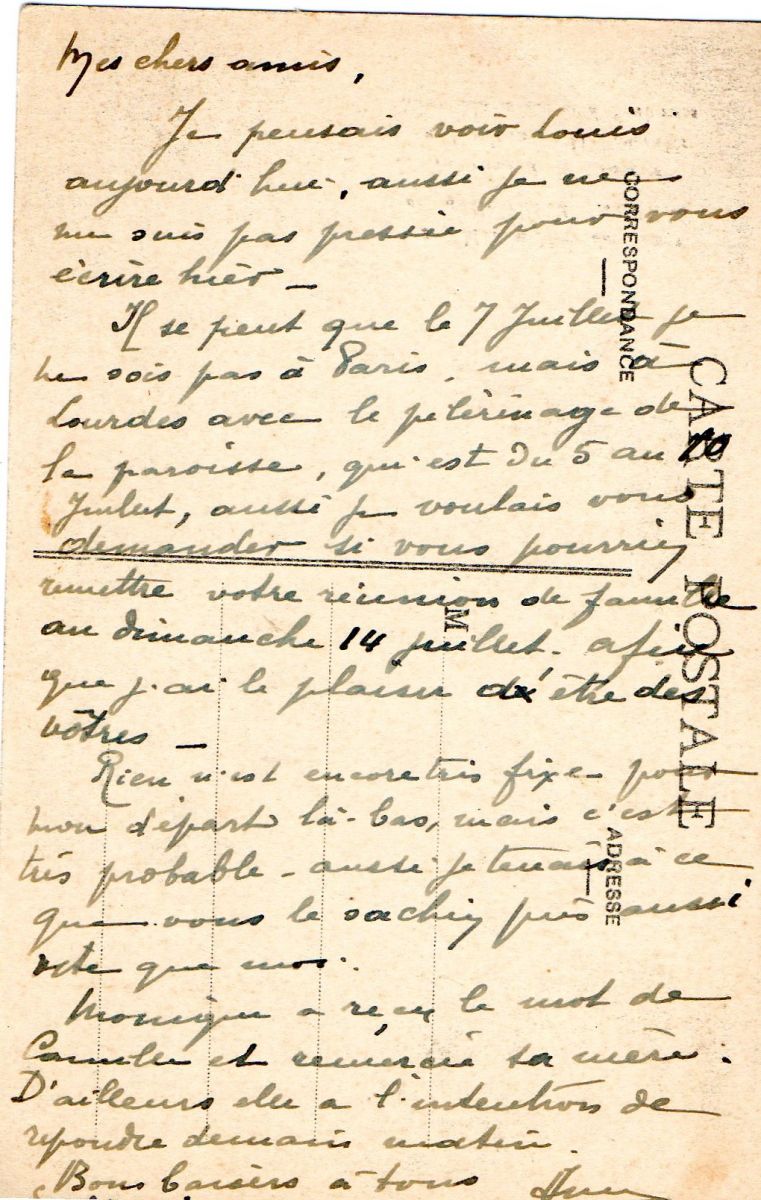 Mes chers amis,
Je pensais voir Louis
aujourd'hui, aussi je ne
me suis pas pressée pour vous
écrire hier —
Il se peut que le 7 Juillet je
ne sois pas à Paris, mais à
Lourdes avec le pélèrinage de
la paroisse, qui est du 5 au 10
Juillet, aussi je voulais vous
demander si vous pourriez
remettre votre réunion de famille
au dimanche 14 juillet. afin
que j'ai le plaisir d'être des
vôtres —
Rien n'est encore très fixe pour
mon départ là-bas, mais c'est
très probable - aussi je tenais à ce
que vous le sachiez aussi
vite que moi.
Monique a reçu le mot de
Camille et remercie sa mère.
D'ailleurs elle a l'intention de
répondre demain matin.
Bons baisers à tous
CARTE POSTALE
CORRESPONDANCE
ADRESSE
M